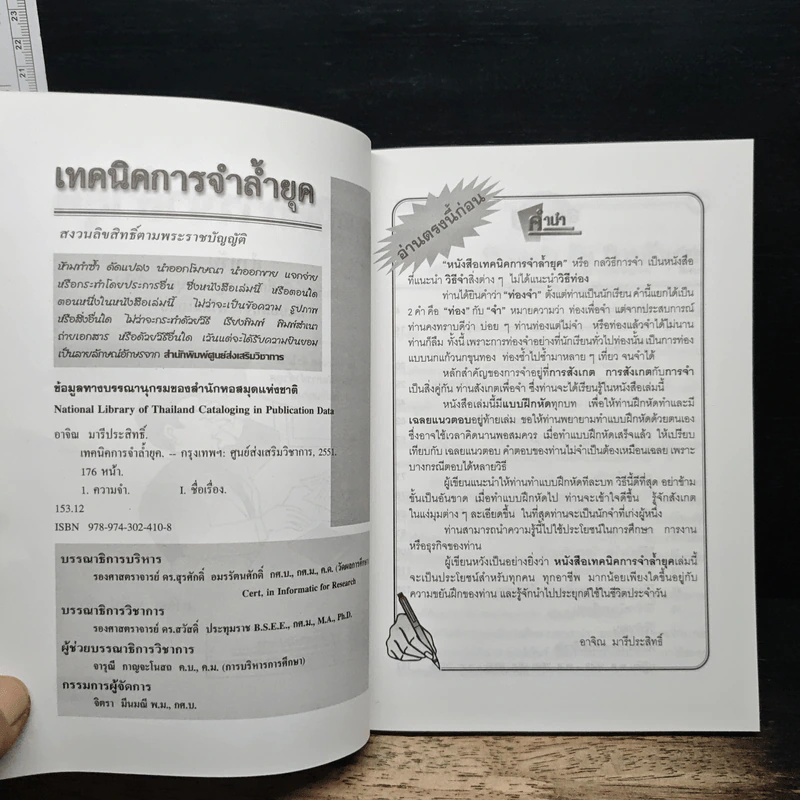 เทคนิคการจำล้ำยุค
สงวนลิขสิทธิ์ตามพระราชบัญญัติ
ห้ามทำซ้ำ ดัดแปลง นำออกโฆษณา นำออกขาย แจกจ่าย
หรือกระทำโดยประการอื่น ซึ่งหนังสือเล่มนี้ หรือตอนใด
ตอนหนึ่งในหนังสือเล่มนี้ ไม่ว่าจะเป็นข้อความ รูปภาพ
หรือสิ่งอื่นใด ไม่ว่าจะกระทำด้วยวิธี เรียงพิมพ์ พิมพ์สำเนา
ถ่ายเอกสาร หรือด้วยวิธีอื่นใด เว้นแต่จะได้รับความยินยอม
เป็นลายลักษณ์อักษรจาก สำนักพิมพ์ศูนย์ส่งเสริมวิชาการ
ข้อมูลทางบรรณานุกรมของสำนักหอสมุดแห่งชาติ
National Library of Thailand Cataloging in Publication Data
อาจิณ มารีประสิทธิ์.
เทคนิคการจำล้ำยุค. -- กรุงเทพฯ: ศูนย์ส่งเสริมวิชาการ, 2551.
176 หน้า.
1. ความจำ. I. ชื่อเรื่อง.
153.12
ISBN 978-974-302-410-8
บรรณาธิการบริหาร
รองศาสตราจารย์ ดร.สุรศักดิ์ อมรรัตนศักดิ์ กศ.บ., กศ.ม., ค.ด. (วัดผลการศึกษา)
Cert, in Informatic for Research
บรรณาธิการวิชาการ
รองศาสตราจารย์ ดร.สวัสดิ์ ประทุมราช B.S.E.E., กศ.ม., M.A., Ph.D.
ผู้ช่วยบรรณาธิการวิชาการ
จารุณี กาญจะโนสถ ค.บ., ค.ม. (การบริหารการศึกษา)
กรรมการผู้จัดการ
จิตรา มีนมณี พ.ม., กศ.บ.
อ่านตรงนี้ก่อน
คำนำ
"หนังสือเทคนิคการจำล้ำยุค" หรือ กลวิธีการจำ เป็นหนังสือ
ที่แนะนำ วิธีจำสิ่งต่าง ๆ ไม่ได้แนะนำวิธีท่อง
ท่านได้ยินคำว่า "ท่องจำ" ตั้งแต่ท่านเป็นนักเรียน คำนี้แยกได้เป็น
2 คำ คือ "ท่อง" กับ "จำ" หมายความว่า ท่องเพื่อจำ แต่จากประสบการณ์
ท่านคงทราบดีว่า บ่อย ๆ ท่านท่องแต่ไม่จำ หรือท่องแล้วจำได้ไม่นาน
ท่านก็ลืม ทั้งนี้ เพราะการท่องจำอย่างที่นักเรียนทั่วไปท่องนั้น เป็นการท่อง
แบบนกแก้วนกขุนทอง ท่องซ้ำไปซ้ำมาหลาย ๆ เที่ยว จนจำได้
หลักสำคัญของการจำอยู่ที่การสังเกต การสังเกตกับการจำ
เป็นสิ่งคู่กัน ท่านสังเกตเพื่อจำ ซึ่งท่านจะได้เรียนรู้ในหนังสือเล่มนี้
หนังสือเล่มนี้มีแบบฝึกหัดทุกบท เพื่อให้ท่านฝึกหัดทำและมี
เฉลยแนวตอบอยู่ท้ายเล่ม ขอให้ท่านพยายามทำแบบฝึกหัดด้วยตนเอง
ซึ่งอาจใช้เวลาคิดนานพอสมควร เมื่อทำแบบฝึกหัดเสร็จแล้ว ให้เปรียบ
เทียบกับ เฉลยแนวตอบ คำตอบของท่านไม่จำเป็นต้องเหมือนเฉลย เพราะ
บางกรณีตอบได้หลายวิธี
ผู้เขียนแนะนำให้ท่านทำแบบฝึกหัดทีละบท วิธีนี้ดีที่สุด อย่าข้าม
ขั้นเป็นอันขาด เมื่อทำแบบฝึกหัดไป ท่านจะเข้าใจดีขึ้น รู้จักสังเกต
ในแง่มุมต่าง ๆ ละเอียดขึ้น ในที่สุดท่านจะเป็นนักจำที่เก่งผู้หนึ่ง
ท่านสามารถนำความรู้นี้ไปใช้ประโยชน์ในการศึกษา การงาน
หรือธุรกิจของท่าน
ผู้เขียนหวังเป็นอย่างยิ่งว่า หนังสือเทคนิคการจำล้ำยุคเล่มนี้
จะเป็นประโยชน์สำหรับทุกคน ทุกอาชีพ มากน้อยเพียงใดขึ้นอยู่กับ
ความขยันฝึกของท่าน และรู้จักนำไปประยุกต์ใช้ในชีวิตประจำวัน
อาจิณ มารีประสิทธิ์
23
22
21